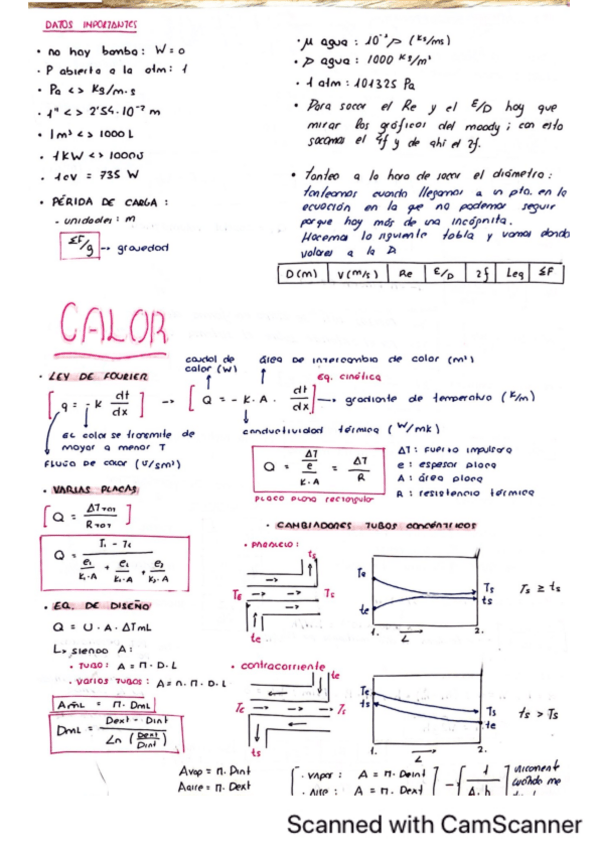 DATOS IMPORTANTES
· no hay bomba: W=0
· P abierto a la atm: 1
· Pa <> Kg/m·s
· 1" <> 2'54·10⁻² m
· 1m³ <> 1000 L
· 1KW <> 1000J
· 1CV = 735 W
· PÉRIDA DE CARGA:
- unidades: m
ΣF/g → gravedad
· μ agua: 10⁻³ρ (kg/ms)
· ρ agua: 1000 kg/m³
· 1 atm: 101325 Pa
· Para sacar el Re y el ε/D hay que
mirar los gráficos del moody; con esto
sacamos el 4f y de ahí el 2f.
· Tanteo a la hora de sacar el diámetro:
tanteamos cuando llegamos a un pto. en la
ecuación en la que no podemos seguir
porque hay más de una incógnita.
Hacemos la siguiente tabla y vamos dando
valores a la D
D(m) V(m/s) Re ε/D 2f Leq ΣF
CALOR
· LEY DE FOURIER
[q = -K dt/dx] → [Q = -K·A· dt/dx] → gradiente de temperatura (K/m)
caudal de calor (W)
área de intercambio de calor (m²)
Eq. cinética
conductividad térmica (W/mK)
el calor se transmite de
mayor a menor T
FLUJO DE CALOR (J/sm²)
Q = ΔT / (e/K·A) = ΔT/R
PLACA PLANA RECTANGULAR
ΔT: fuerza impulsora
e: espesor placa
A: área placa
R: resistencia térmica
· VARIAS PLACAS
[Q = ΔTTOT/RTOT]
Q = / (e₁/K₁·A + e₂/K₂·A + e₃/K₃·A)
· EQ. DE DISEÑO
Q = U·A·ΔTmL
↳ siendo A:
· TUBO: A = Π·D·L
· VARIOS TUBOS: A = n·Π·D·L
AmL = Π·DmL
DmL = (Dext - Dint) / Ln (Dext/Dint)
· CAMBIADORES TUBOS CONCÉNTRICOS
· PARALELO:
ts
TE Ts
te
Te
te
Ts
ts
1. L 2.
Ts ≥ ts
· contracorriente
te
TE Ts
ts
Te
ts
Ts
te
1. L 2.
ts > Ts
Avap = Π·Dint
Aaire = Π·Dext
· vapor: A = Π·Dint
· Aire: A = Π·Dext
1/A·h
cuando me
Scanned with CamScanner